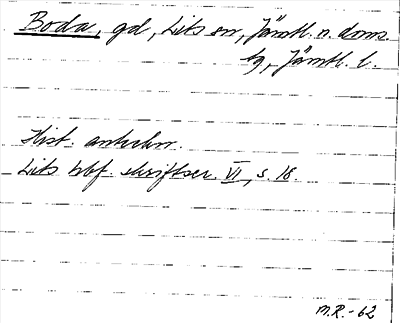 Boda, gd, Lits sn, Jämtl. n. doms.
tg, Jämtl. l.
Hist. anteckn.
Lits hbf. skriftser. VI, s. 18.
M.R. - 62